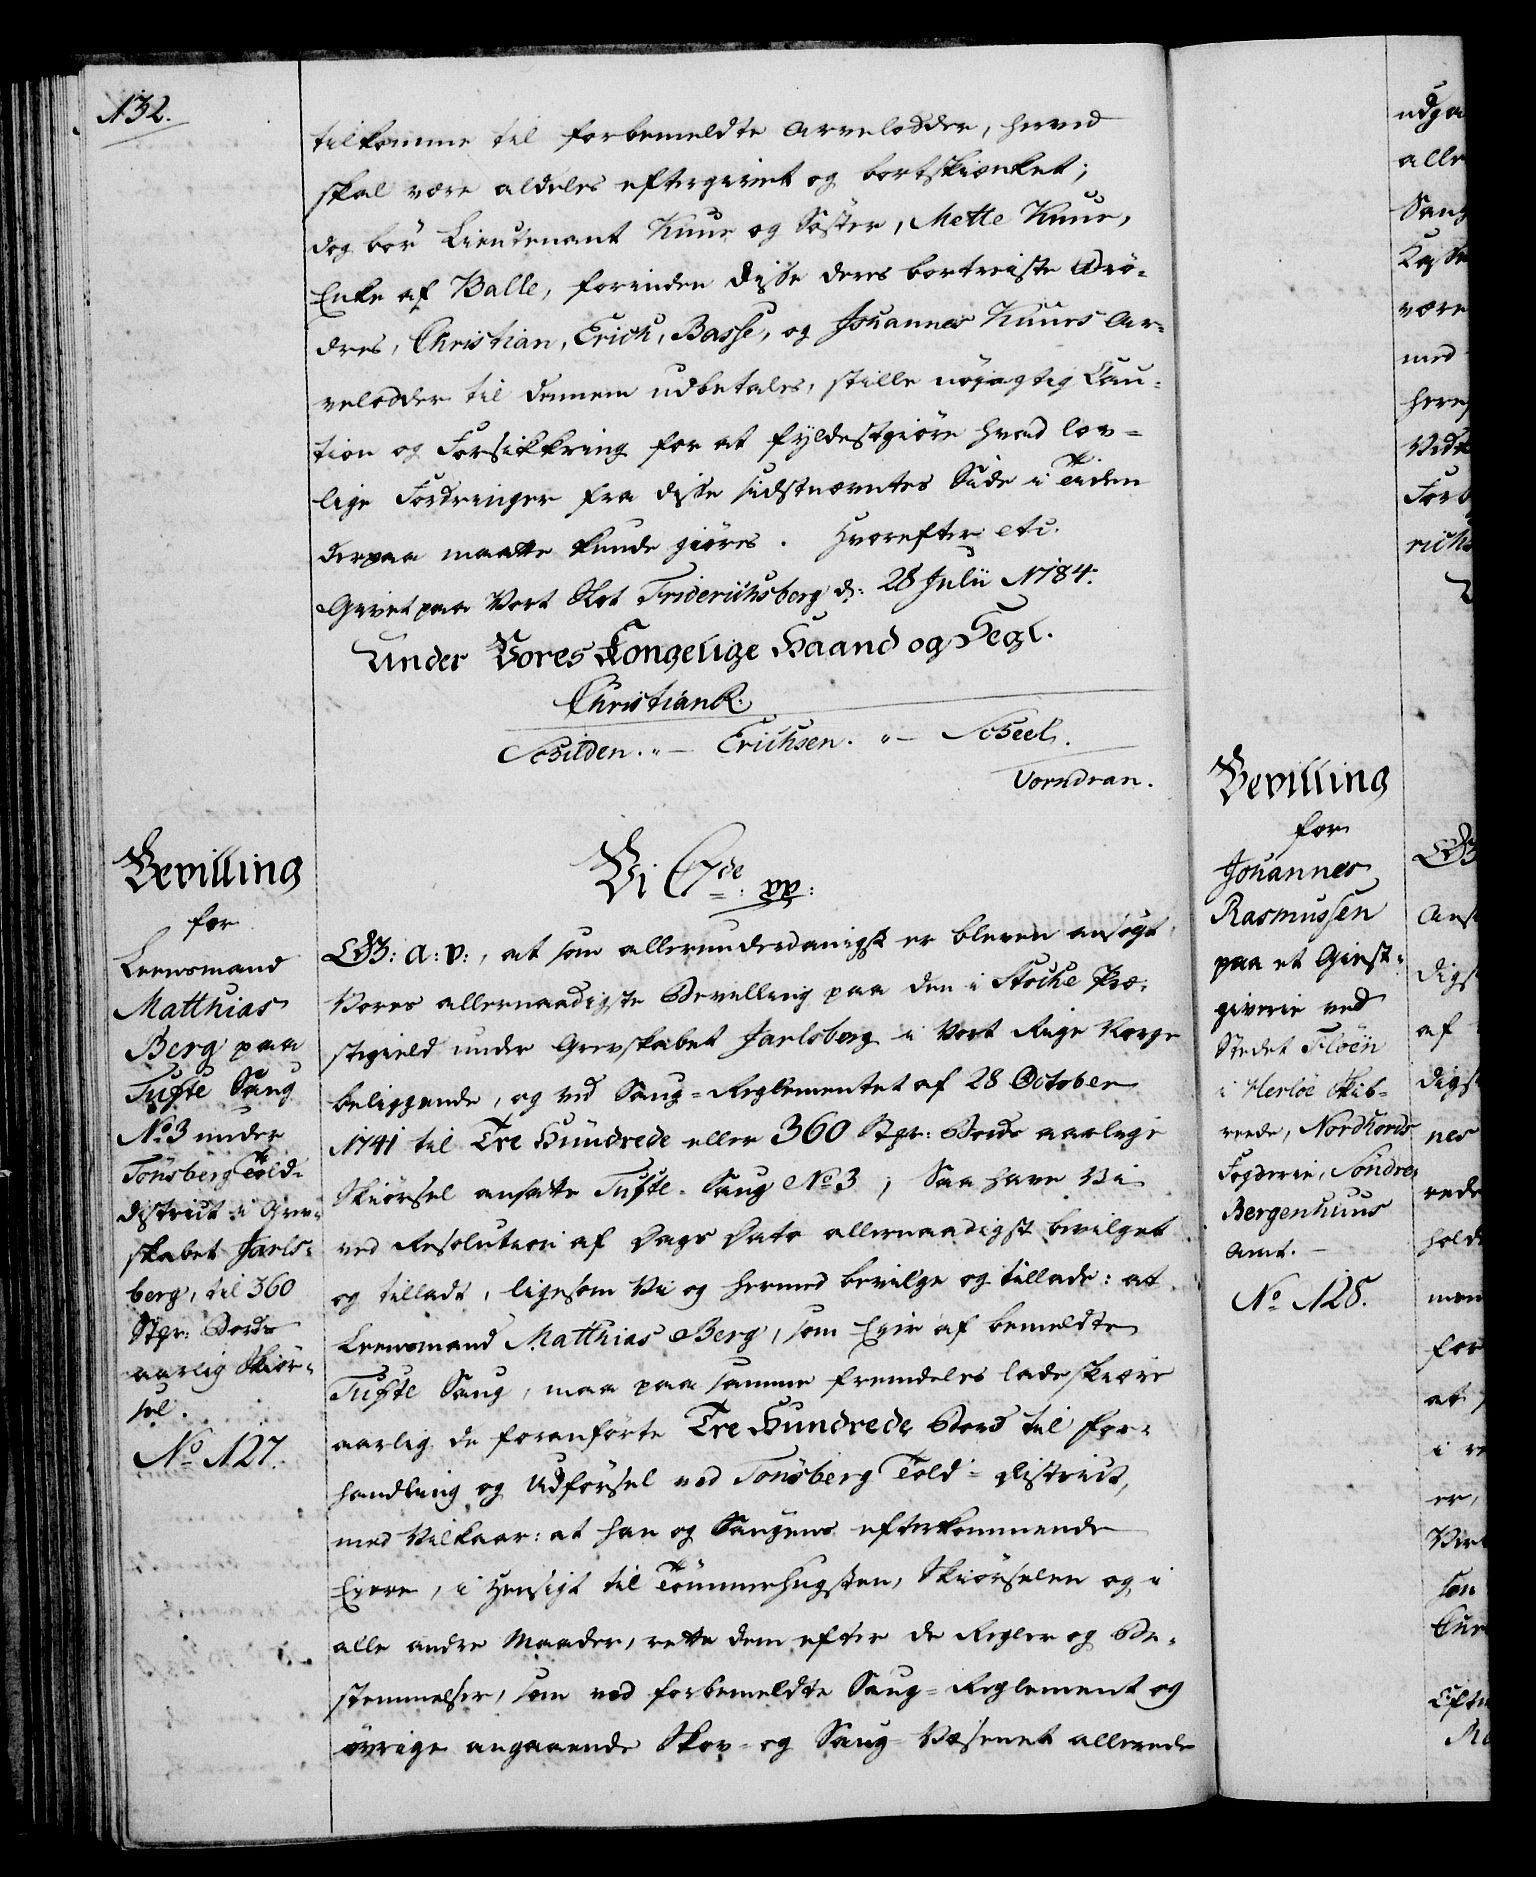 132.
tilkomme til forbemeldte Arvelodder, herved
skal være aldeles eftergivet og bortskienket;
dog bör Lieutenant Kuur og Söster, Mette Kuur,
Enke af Balle, forinden disse deres bortreiste Brö-
dres, Christian, Erich, Basse, og Johannes Kuurs Ar-
velodder til dennem udbetales, stille nöjagtig Cau-
tion og Forsikkring for at fyldestgiöre hvad lov-
lige Fordringer fra disse sidstnævntes Side i Tiden
derpaa maatte kunde giöres. Hvorefter etc.
Givet paa Vort Slot Friderichsberg d: 28 Julii 1784.
Under Vores Kongelige Haand og Segl.
Christian R.
Schilden. " — Erichsen. " — Scheel.
Vorndran.
Bevilling
for
Leensmand
Matthias
Berg paa
Tufte Saug
No 3 under
Tönsberg Told-
district i Grev-
skabet Jarls-
berg, til 360
Stgr: Bords
aarlig Skiör-
sel.
No 127.
Vi C7de: pp:
G: A: V:, at som allerunderdanigst er bleven ansögt
Vores allernaadigste Bevilling paa den i Stocke Præ-
stegield under Grevskabet Jarlsberg i Vort Rige Norge
beliggende, og ved Saug-Reglementet af 28 October
1741 til Tre Hundrede eller 360 Stgr: Bords aarlige
Skiörsel ansatte Tufte-Saug No 3; Saa have Vi
ved Resolution af Dags Dato allernaadigst bevilget
og tilladt, ligesom Vi og hermed bevilge og tillade: at
Leensmand Matthias Berg, som Eier af bemeldte
Tufte Saug, maa paa samme fremdeles lade skiære
aarlig de foranförte Tre Hundrede Bord til For-
handling og Udförsel ved Tönsberg Told-District,
med Vilkaar: at han og Saugens efterkommende
Eiere, i Hensigt til Tömmerhugsten, Skiörselen og i
alle andre Maader, rette dem efter de Regler og Be-
stemmelser, som ved forbemeldte Saug-Reglement og
övrige angaaende Skov- og Saug-Væsenet allerede
Bevilling
for
Johannes
Rasmussen
paa et Giest-
giverie ved
Stedet Flöen
i Herlöe Skib-
reede, Nordhords
Fogderie, Söndre
Bergenhuus
Amt. —
No 128.